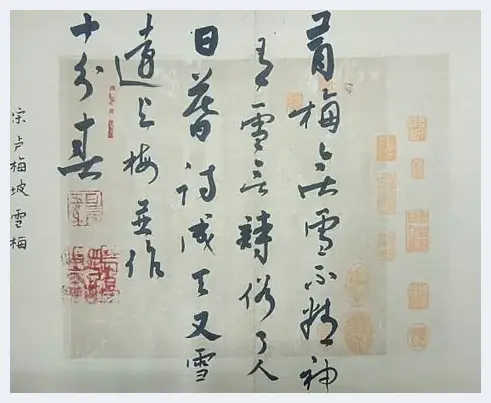 有梅无雪不精神
有雪无詩俗了人
日暮诗成天又雪
与梅並作
十分春
宋 卢梅坡 雪梅